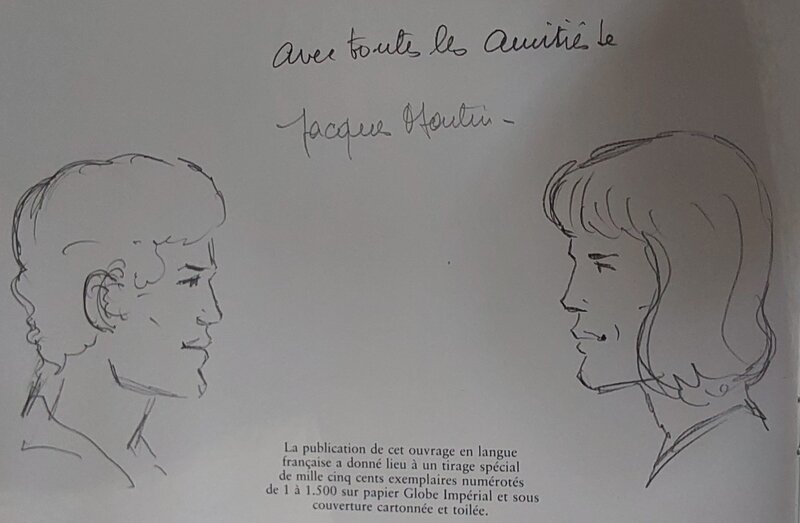 avec toutes les amitiés de
Jacques Martin -
La publication de cet ouvrage en langue
française a donné lieu à un tirage spécial
de mille cinq cents exemplaires numérotés
de 1 à 1.500 sur papier Globe Impérial et sous
couverture cartonnée et toilée.